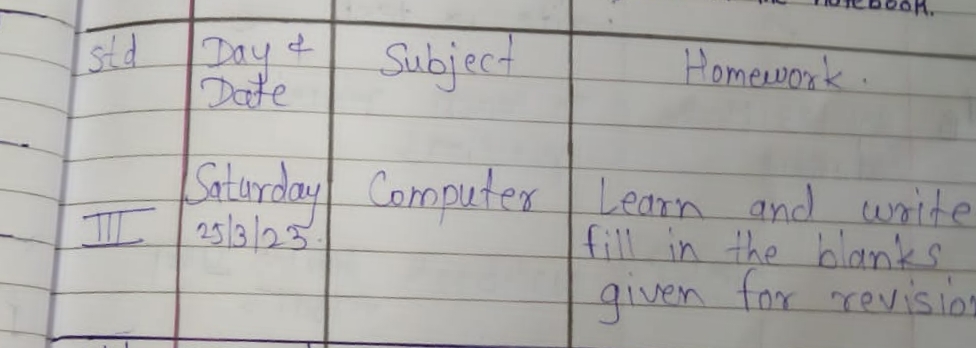 notebook.
Std Day & Subject Homework.
Date
Saturday Computer Learn and write
III 25/3/23. fill in the blanks
given for revision